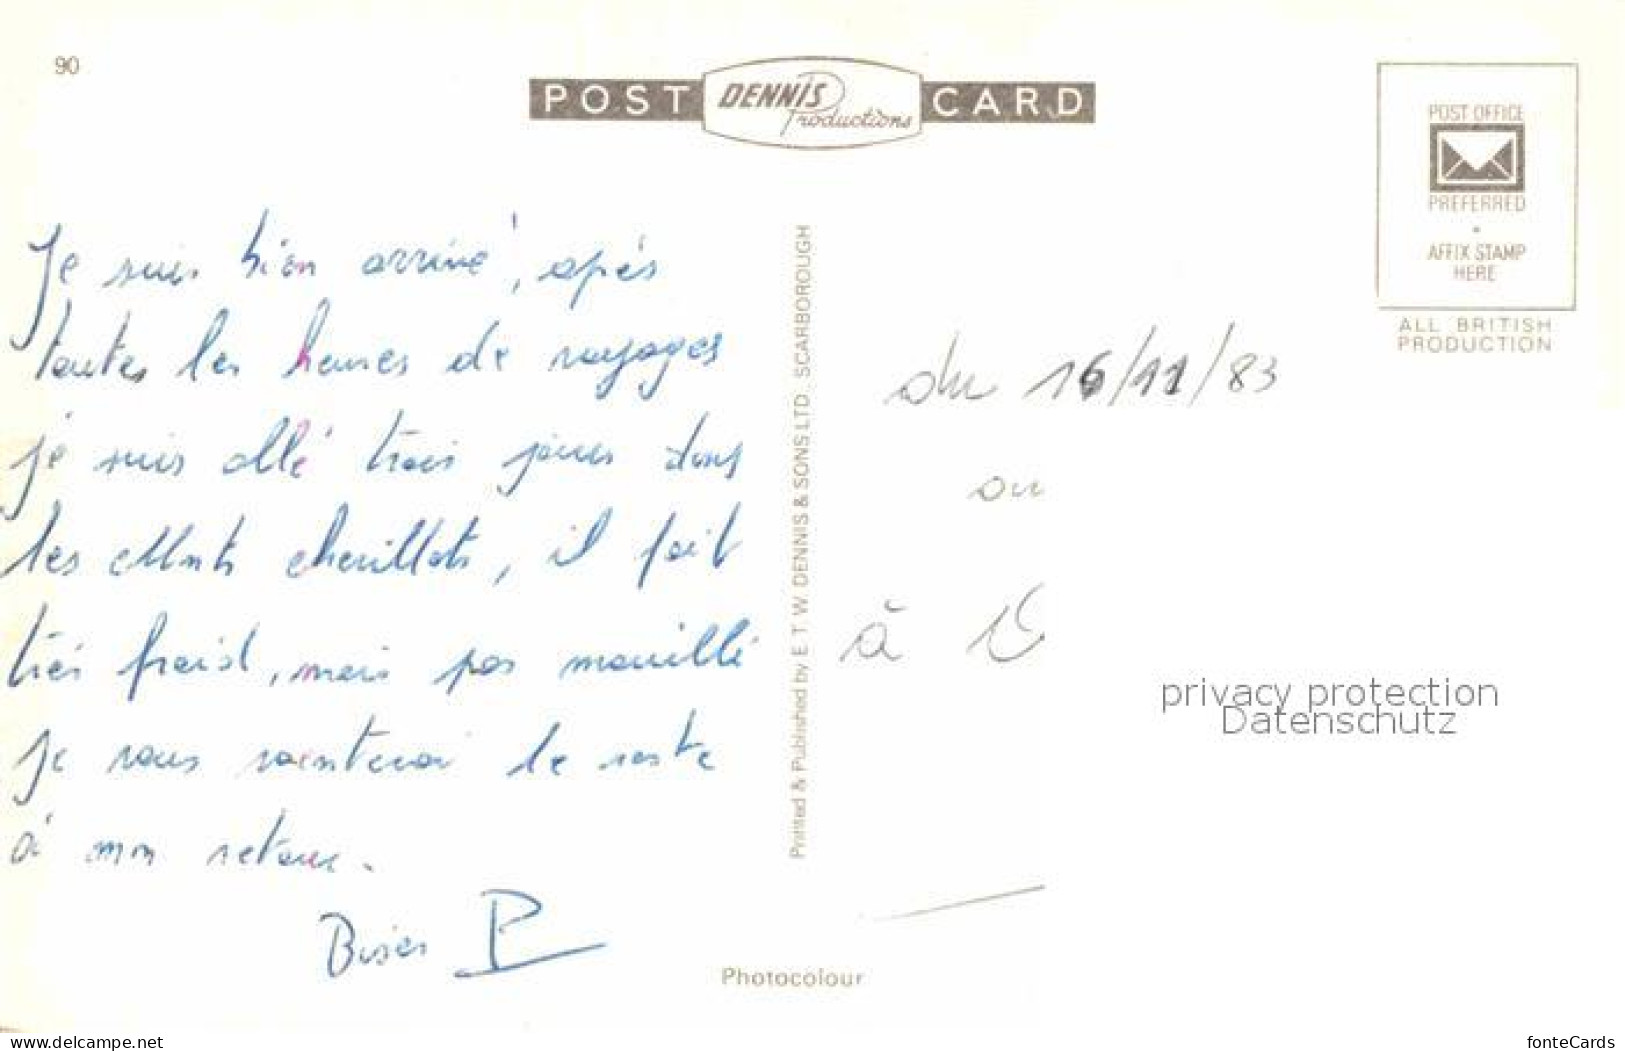 90
POST DENNIS Productions CARD
POST OFFICE
PREFERRED
AFFIX STAMP
HERE
ALL BRITISH
PRODUCTION
Je suis bien arrivé, après
toutes les heures de voyages
je suis allé trois jours dans
les Monts chevillots, il fait
très froid, mais pas mouillé
Je vous raconterai le reste
à mon retour.
Bises P
Printed & Published by E. T. W. DENNIS & SONS LTD. SCARBOROUGH
Photocolour
du 16/11/83
au
à
privacy protection
Datenschutz
www.delcampe.net
fonteCards